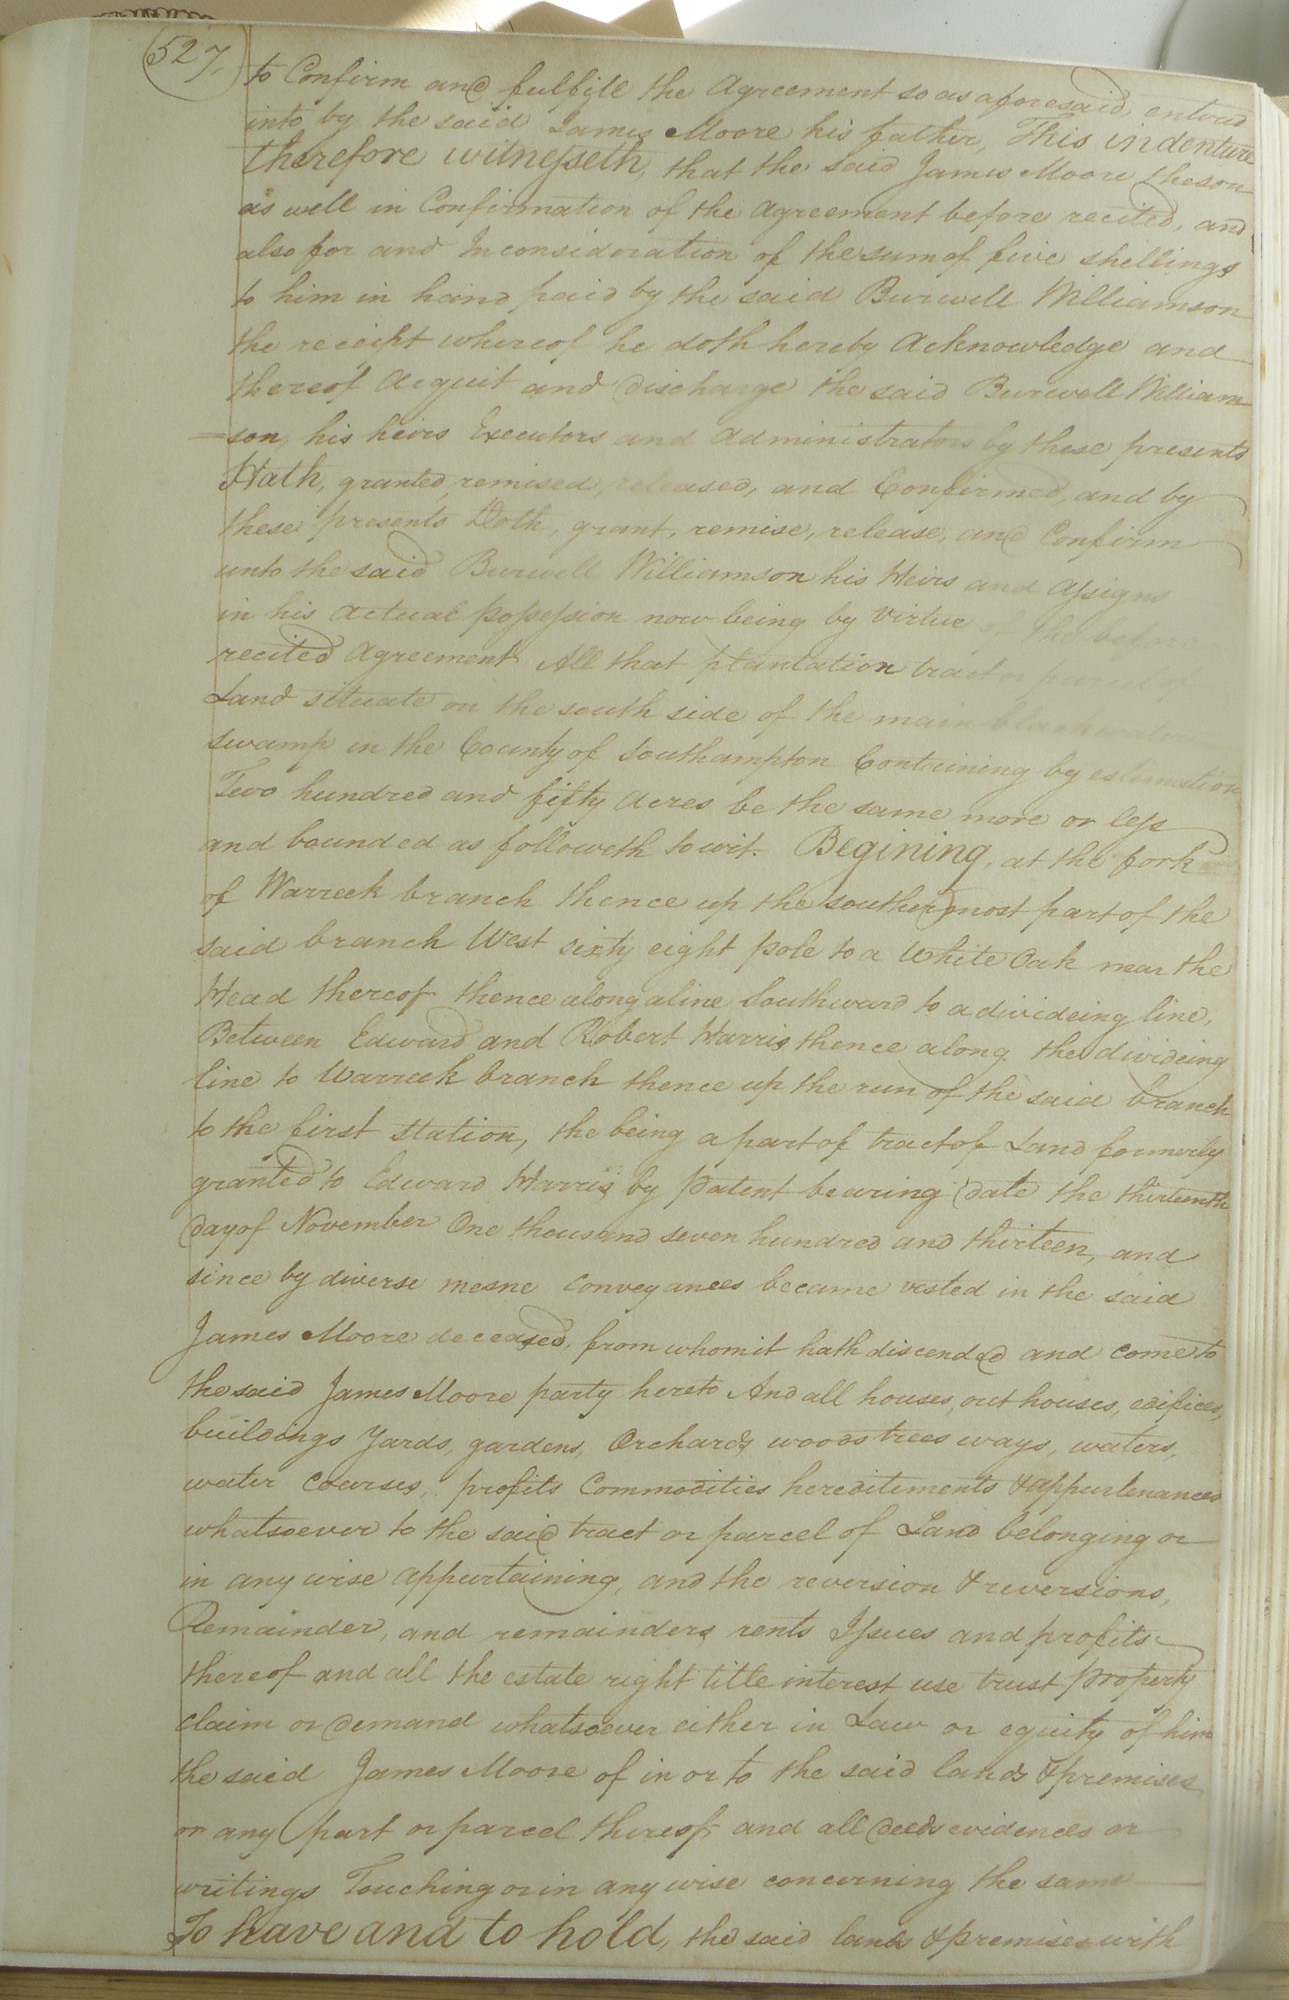 527.
to Confirm and fulfill the Agreement so as aforesaid, entered
into by the said James Moore his father, This indenture
therefore witnesseth, that the said James Moore the son
as well in Confirmation of the Agreement before recited, and
also for and In consideration of the sum of five shillings
to him in hand paid by the said Burwell Williamson
the receipt whereof he doth hereby Acknowledge and
thereof Acquit and discharge the said Burwell William
=son, his heirs Executors and Administrators by these presents
Hath, granted, remised, released, and Confirmed, and by
these presents Doth, grant, remise, release, and Confirm
unto the said Burwell Williamson his Heirs and Assigns
in his Actual possession now being by Virtue of the before
recited Agreement All that plantation tract or parcel of
Land situate on the south side of the main blackwater
swamp in the County of Southampton Containing by estimation
Two hundred and fifty Acres be the same more or less
and bounded as followeth to wit. Begining, at the fork
of Warreek branch thence up the southermost part of the
said branch West sixty eight pole to a White Oak near the
Head thereof thence along a line Southward to a divideing line,
Between Edward and Robert Harris thence along the divideing
line to Warreek branch thence up the run of the said branch
to the first station, the being a part of tract of Land formerly
granted to Edward Harris by Patent bearing date the thirteenth
day of November One thousand seven hundred and thirteen, and
since by diverse mesne Conveyances became vested in the said
James Moore deceased, from whom it hath discended and come to
the said James Moore party hereto And all houses, out houses, edifices,
buildings Yards, gardens, Orchards woods trees ways, waters,
water Courses, profits Commodities hereditements & appurtenances
whatsoever to the said tract or parcel of Land belonging or
in any wise appurtaining, and the reversion & reversions,
Remainder, and remainders rents Issues and profits
thereof and all the estate right title interest use trust property
claim or demand whatsoever either in Law or equity of him
the said James Moore of in or to the said lands & premises
or any part or parcel thereof, and all deeds evidences or
writings Touching or in any wise concerning the same
To have and to hold, the said lands & premises with